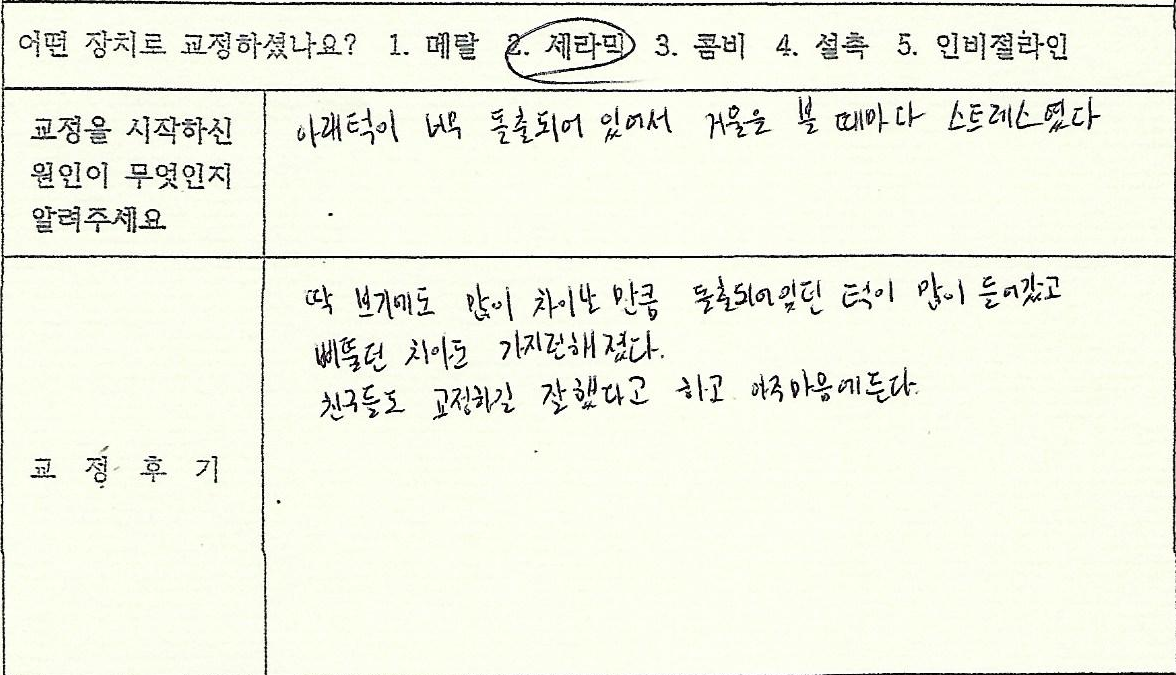 어떤 장치로 교정하셨나요? 1. 메탈 2. 세라믹 3. 콤비 4. 설측 5. 인비절라인
교정을 시작하신
원인이 무엇인지
알려주세요
아래턱이 너무 돌출되어 있어서 거울을 볼 때마다 스트레스였다
교 정 후 기
딱 보기에도 많이 차이난 만큼 돌출되어있던 턱이 많이 들어갔고
삐뚤던 치아도 가지런해졌다.
친구들도 교정하길 잘했다고 하고 아주마음에든다.